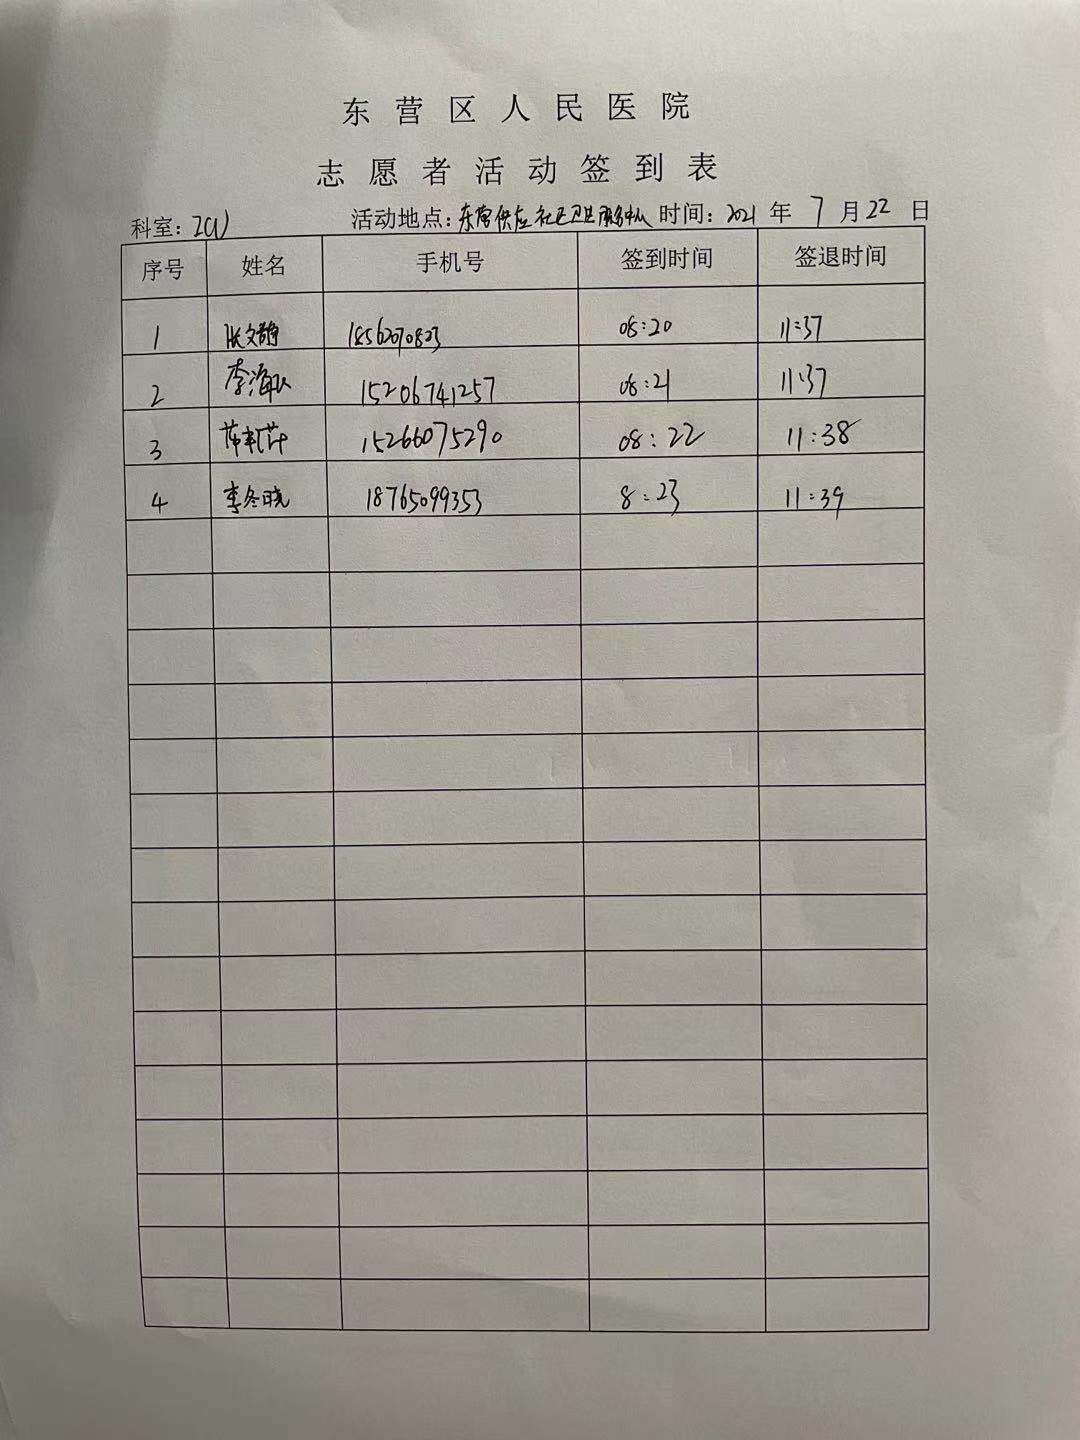 东营区人民医院
志愿者活动签到表
科室：ICU 活动地点：东营供应社区卫生服务中心 时间：2021 年 7 月 22 日
序号 姓名 手机号 签到时间 签退时间
1 张文静 18562070823 08:20 11:37
2 李海 15206741257 08:21 11:37
3 15266075290 08:22 11:38
4 李冬晓 18765099353 8:23 11:39